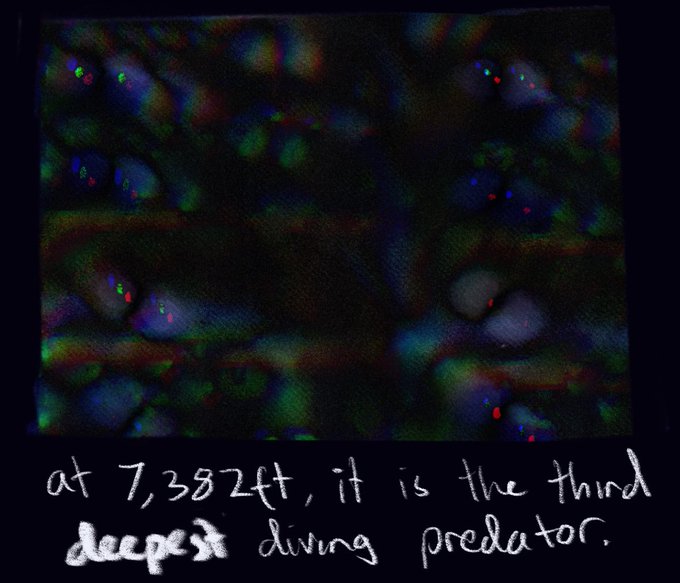 at 7,382ft, it is the third
deepest diving predator.